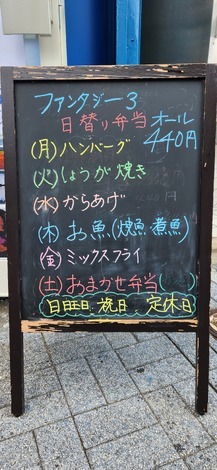 ファンタジー3
日替り弁当 オール
440円
(月)ハンバーグ
(火)しょうが焼き
(水)からあげ
(木)お魚(焼魚・煮魚)
(金)ミックスフライ
(土)おまかせ弁当( )
日曜日、祝日、定休日